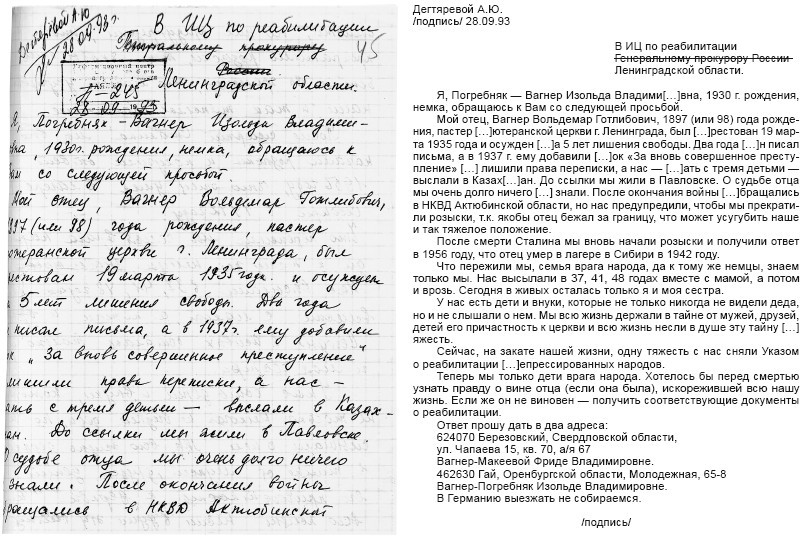 Дегтяревой А.Ю
28.09.93г.
В ИЦ по реабилитации
Генеральному прокурору
России
45
П-245
28 09 1993
Ленинградской области.
Я, Погребняк – Вагнер Изольда Владими-
вна, 1930г. рождения, немка, обращаюсь к
Вам со следующей просьбой.
Мой отец, Вагнер Вольдемар Готлибович,
1897 (или 98) года рождения, пастер
ютеранской церкви г. Ленинграда, был
рестован 19 марта 1935 года и осужден
а 5 лет лишения свободы. Два года
н писал письма, а в 1937г. ему добавили
ок „За вновь совершенное преступление"
лишили права переписки, а нас –
ать с тремя детьми — выслали в Казах-
ан. До ссылки мы жили в Павловске.
О судьбе отца мы очень долго ничего
знали. После окончания войны
бращались в НКВД Актюбинской
Дегтяревой А.Ю.
/подпись/ 28.09.93
В ИЦ по реабилитации
Генеральному прокурору России
Ленинградской области.
Я, Погребняк — Вагнер Изольда Владими[...]вна, 1930 г. рождения,
немка, обращаюсь к Вам со следующей просьбой.
Мой отец, Вагнер Вольдемар Готлибович, 1897 (или 98) года рожде-
ния, пастер [...]ютеранской церкви г. Ленинграда, был [...]рестован 19 мар-
та 1935 года и осужден [...]а 5 лет лишения свободы. Два года [...]н писал
письма, а в 1937 г. ему добавили [...]ок «За вновь совершенное престу-
пление» [...] лишили права переписки, а нас — [...]ать с тремя детьми —
выслали в Казах[...]ан. До ссылки мы жили в Павловске. О судьбе отца
мы очень долго ничего [...] знали. После окончания войны [...]бращались
в НКВД Актюбинской области, но нас предупредили, чтобы мы прекрати-
ли розыски, т.к. якобы отец бежал за границу, что может усугубить наше
и так тяжелое положение.
После смерти Сталина мы вновь начали розыски и получили ответ
в 1956 году, что отец умер в лагере в Сибири в 1942 году.
Что пережили мы, семья врага народа, да к тому же немцы, знаем
только мы. Нас высылали в 37, 41, 48 годах вместе с мамой, а потом
и врозь. Сегодня в живых осталась только я и моя сестра.
У нас есть дети и внуки, которые не только никогда не видели деда,
но и не слышали о нем. Мы всю жизнь держали в тайне от мужей, друзей,
детей его причастность к церкви и всю жизнь несли в душе эту тайну [...]
яжесть.
Сейчас, на закате нашей жизни, одну тяжесть с нас сняли Указом
о реабилитации [...]епрессированных народов.
Теперь мы только дети врага народа. Хотелось бы перед смертью
узнать правду о вине отца (если она была), искорежившей всю нашу
жизнь. Если же он не виновен — получить соответствующие документы
о реабилитации.
Ответ прошу дать в два адреса:
624070 Березовский, Свердловской области,
ул. Чапаева 15, кв. 70, а/я 67
Вагнер-Макеевой Фриде Владимировне.
462630 Гай, Оренбургской области, Молодежная, 65-8
Вагнер-Погребняк Изольде Владимировне.
В Германию выезжать не собираемся.
/подпись/